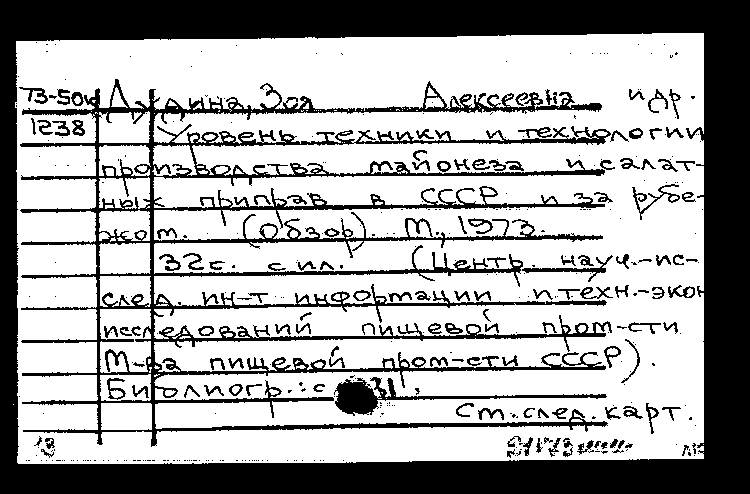 ТЗ-50к Дудина, Зоя Алексеевна и др.
1238 Уровень техники и технологии
производства майонеза и салат-
ных приправ в СССР и за рубе-
жом. (Обзор). М., 1973.
32с. с ил. (Центр. науч.-ис-
след. ин-т информации и техн.-экон
исследований пищевой пром-сти
М-ва пищевой пром-сти СССР).
Библиогр.: с 31.
См. след. карт.
13